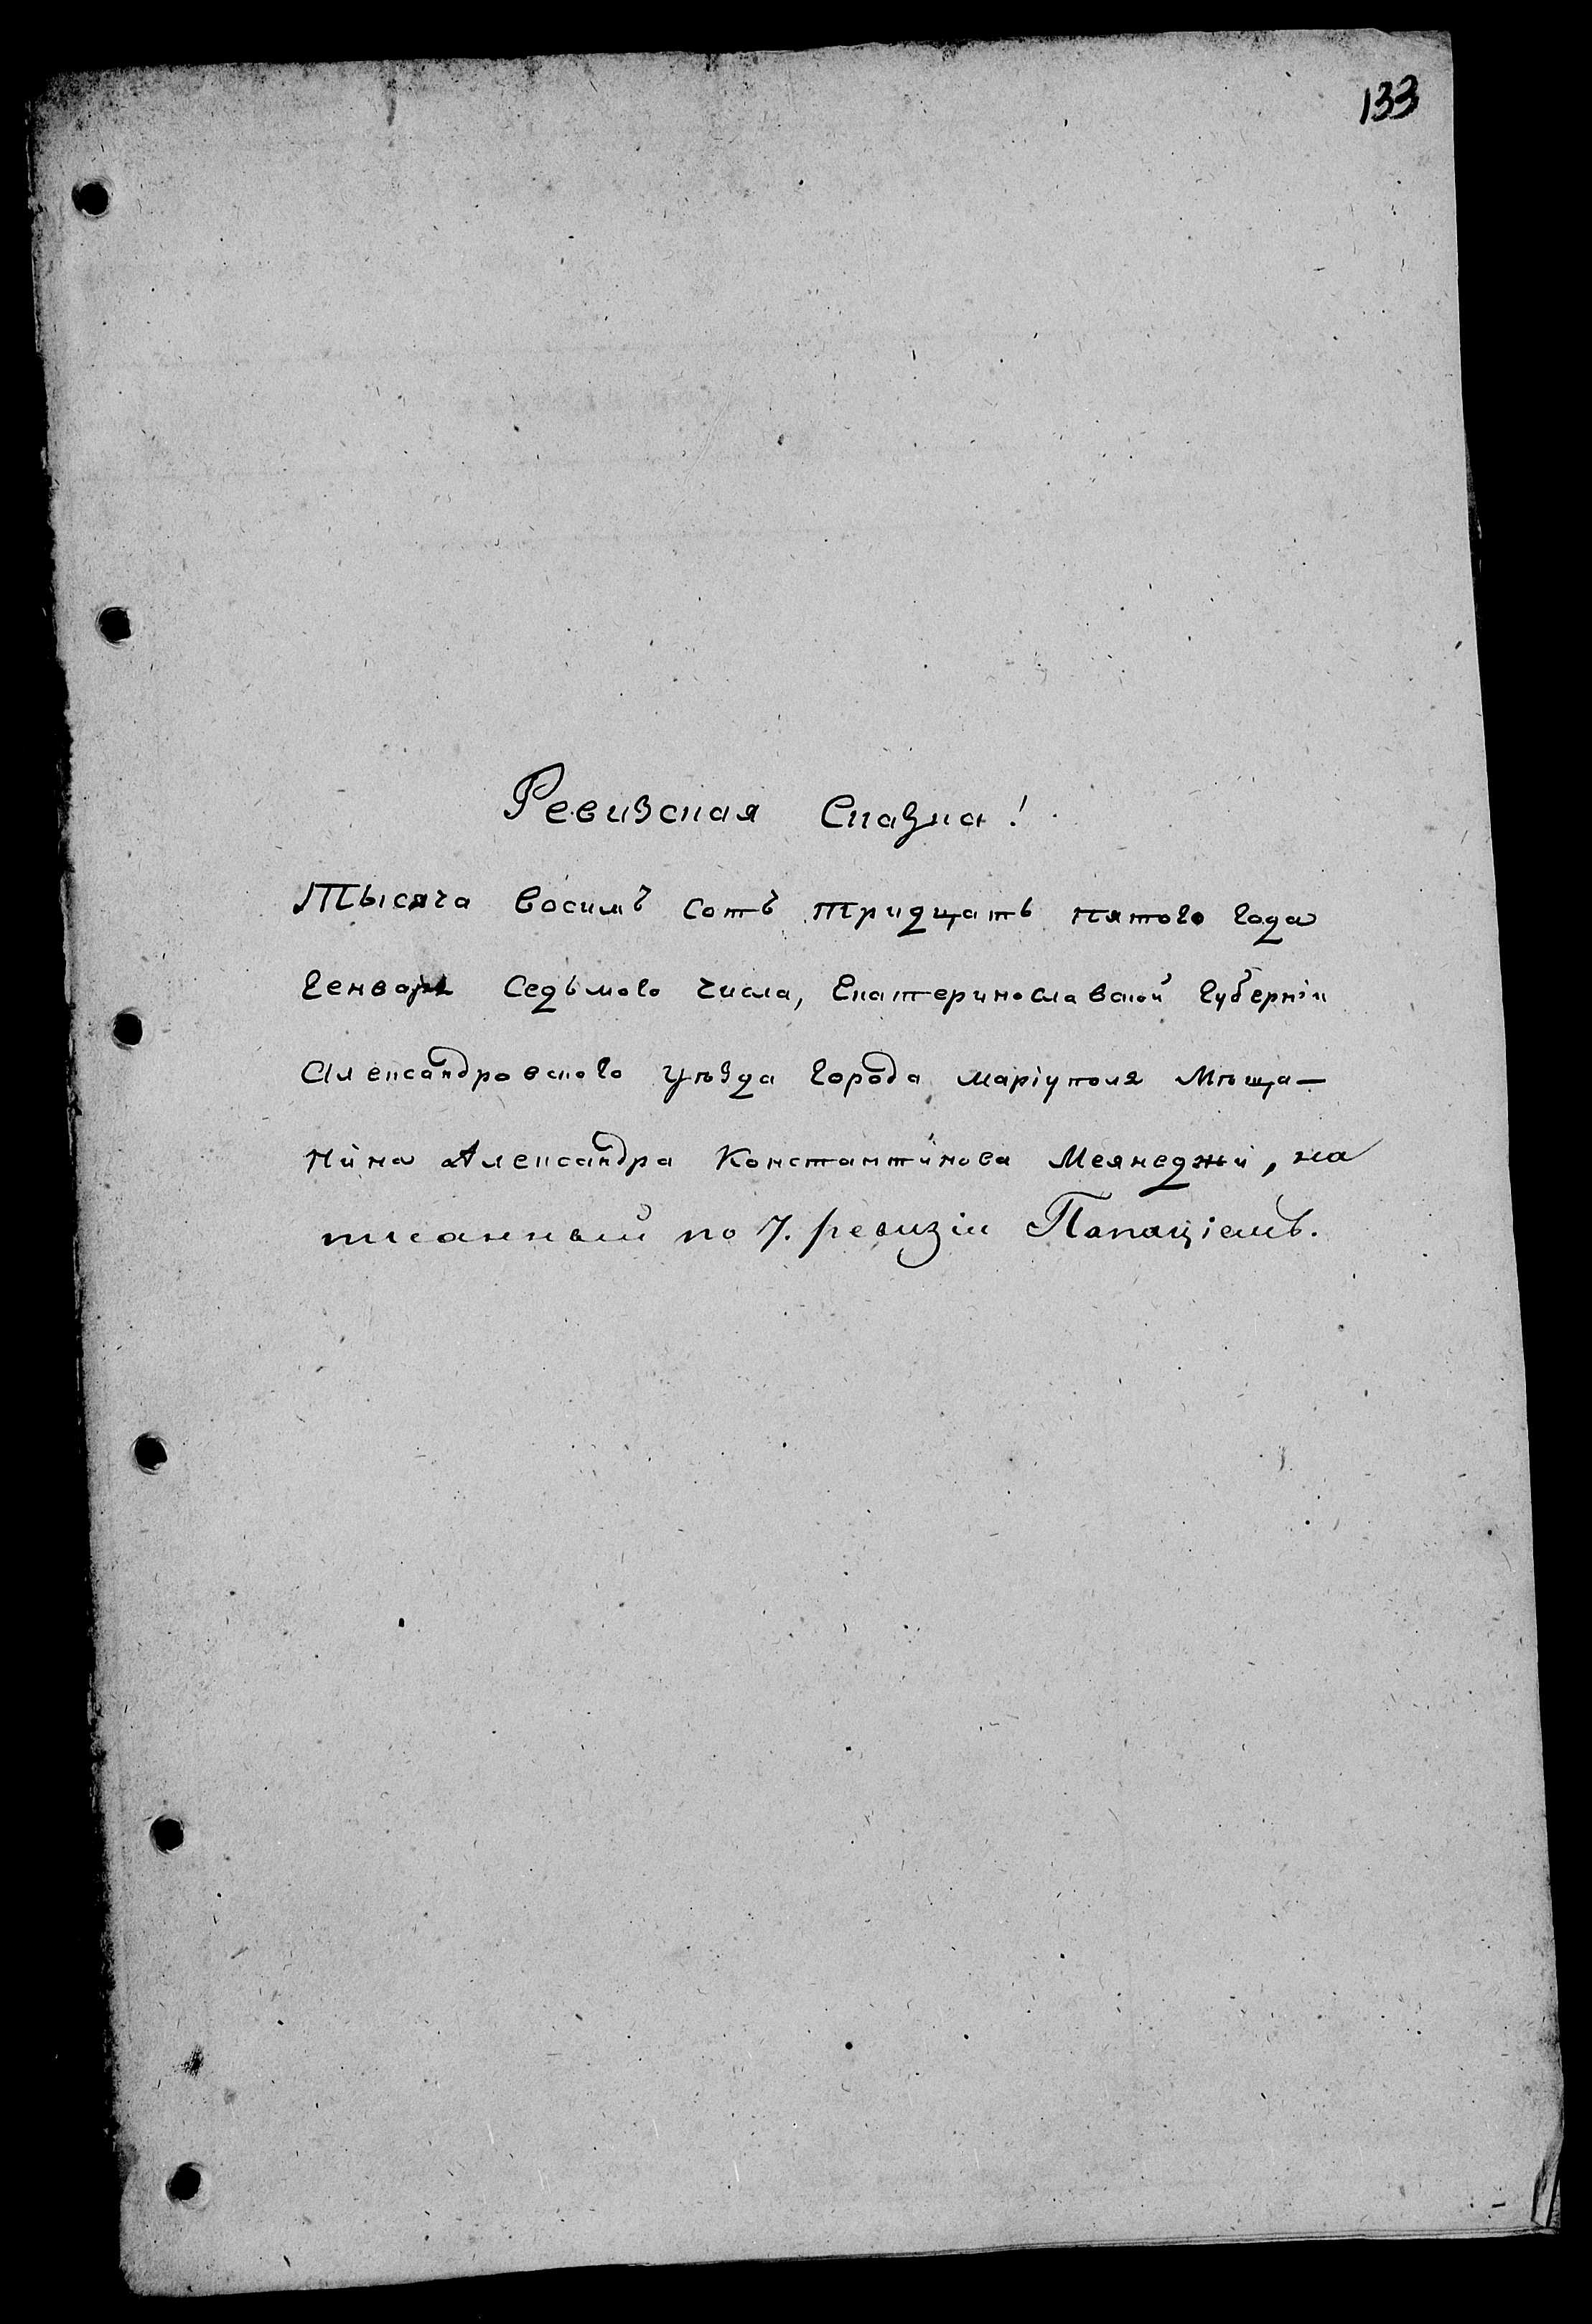 133
Ревизская Сказка!
Тысяча восимъ сотъ тридцать пятого года
Генваря Седьмого числа, Екатеринославской Губерніи
Александровского уѣзда города маріуполя Мѣща—
нина Александра Константинова Меянеджи, на
писанный по 7. ревизіи Папаціемъ.